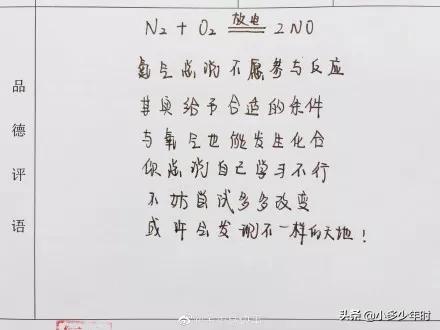 品德评语
N₂ + O₂ 放电 ══ 2NO
氮气总说不愿参与反应
其实给予合适的条件
与氧气也能发生化合
你总说自己学习不行
不妨尝试多多改变
或许会发现不一样的天地！
头条 @小多少年时